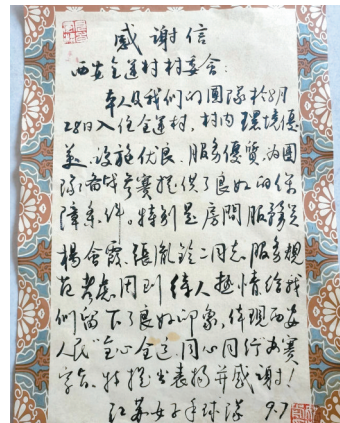 感谢信
西安全运村村委会：
本人及我们的團隊於8月
28日入住全运村，村内環境優
美、设施优良、服务優質、为團
隊备战参赛提供了良好的保
障条件。特别是房間服務员
楊會霞、張胤鈴二同志，服务規
范，考虑周到，待人热情，给我
们留下了良好印象，体現西安
人民“全心全運，同心同行”办赛
宗旨，特提出表揚并感谢！
江苏女子手球隊 9.7